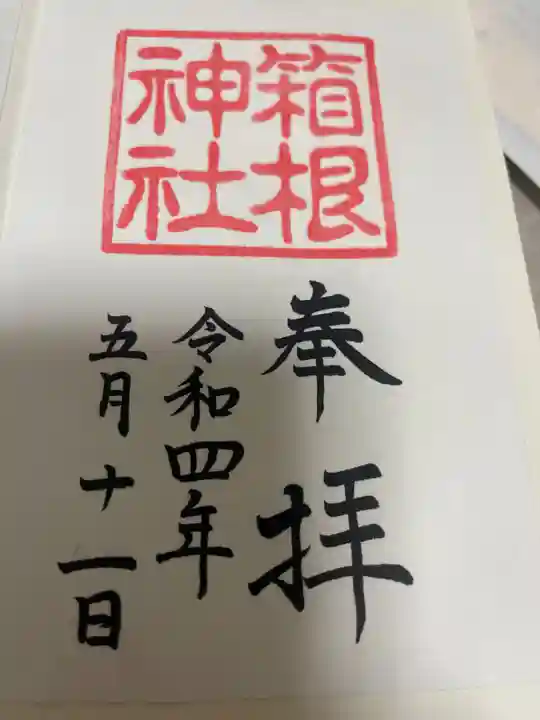 箱根
神社
奉拝
令和四年
五月十一日